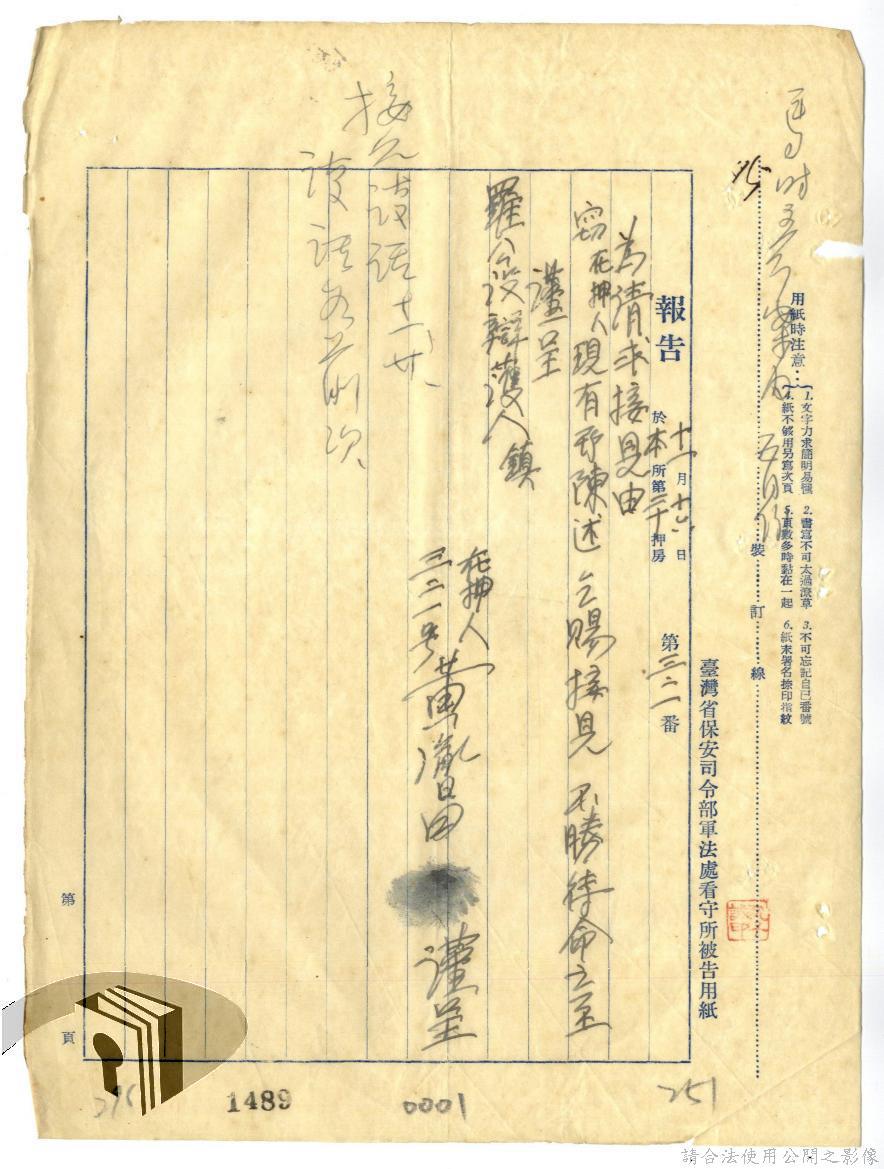 用紙時注意：
1.文字力求簡明易懂 2.書寫不可太過潦草 3.不可忘記自己番號
4.紙不够用另寫次頁 5.頁數多時黏在一起 6.紙末署名捺印指紋
裝訂線
臺灣省保安司令部軍法處看守所被告用紙
報告 十一月十六日 於本所第二十押房 第三二一番
為請求接見由
竊在押人現有所陳述 乞賜接見 不勝待命之至
謹呈
羅公設辯護人鎮
在押人
三二一號黃胤昌 謹呈
接見談話十一
談話如前次
第 頁
1489
0001
251
請合法使用公開之影像